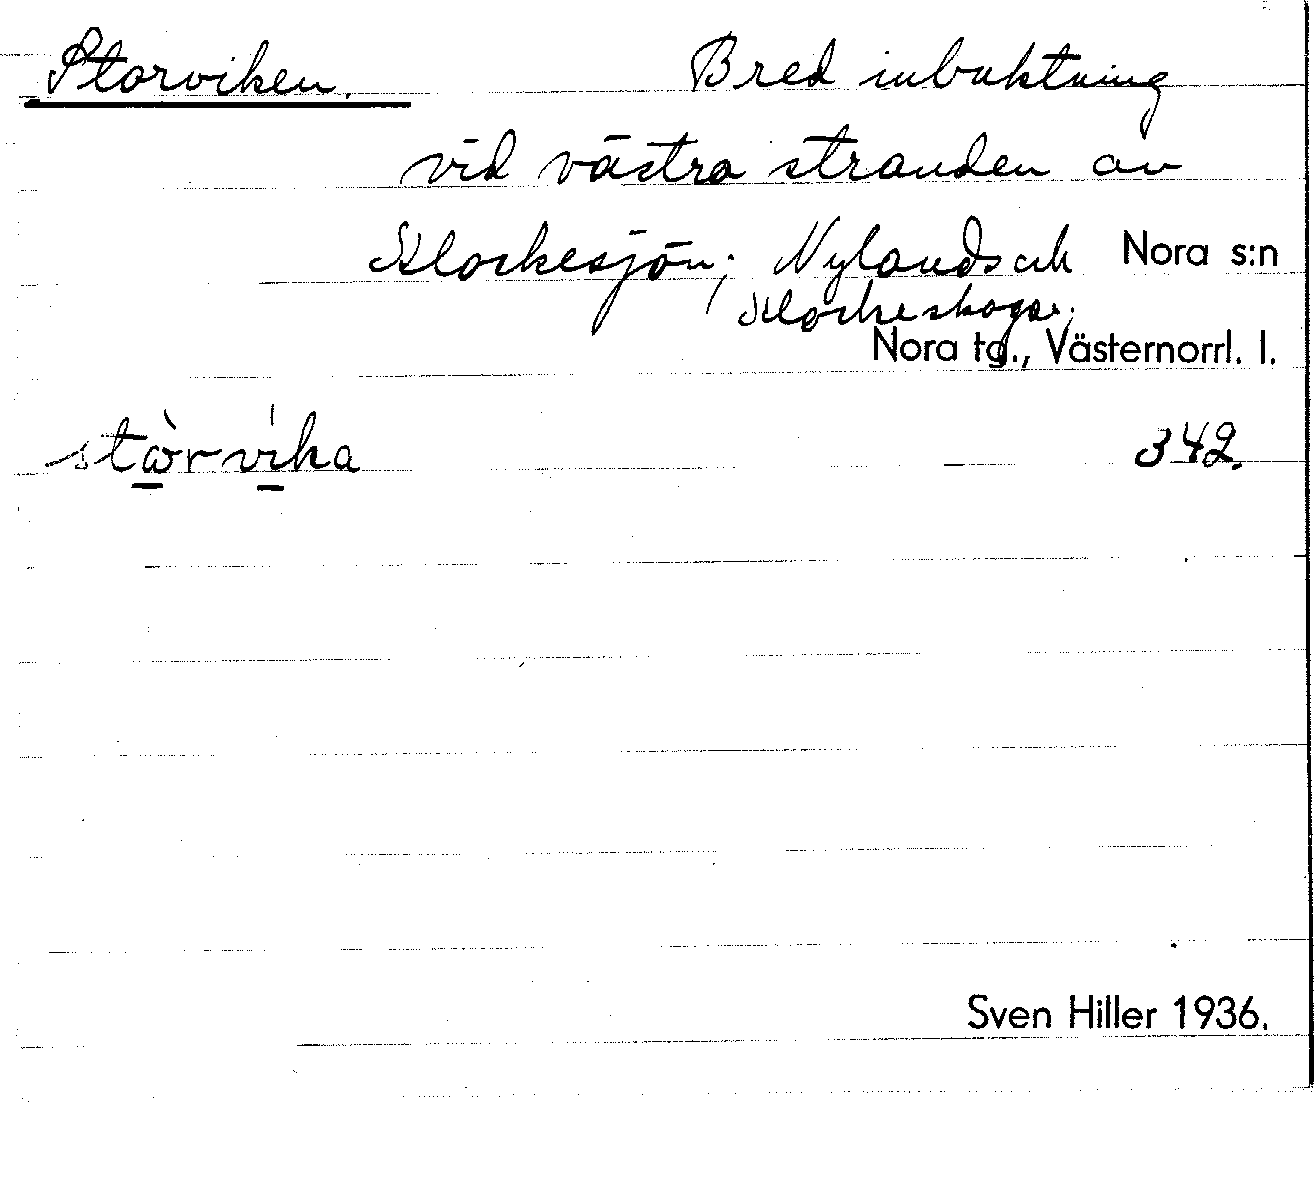 Storviken. Bred inbuktning
vid västra stranden av
Klockesjön; Nylands och Nora s:n
Klockeskogar;
Nora tg., Västernorrl. l.
stòrvika 342.
Sven Hiller 1936.